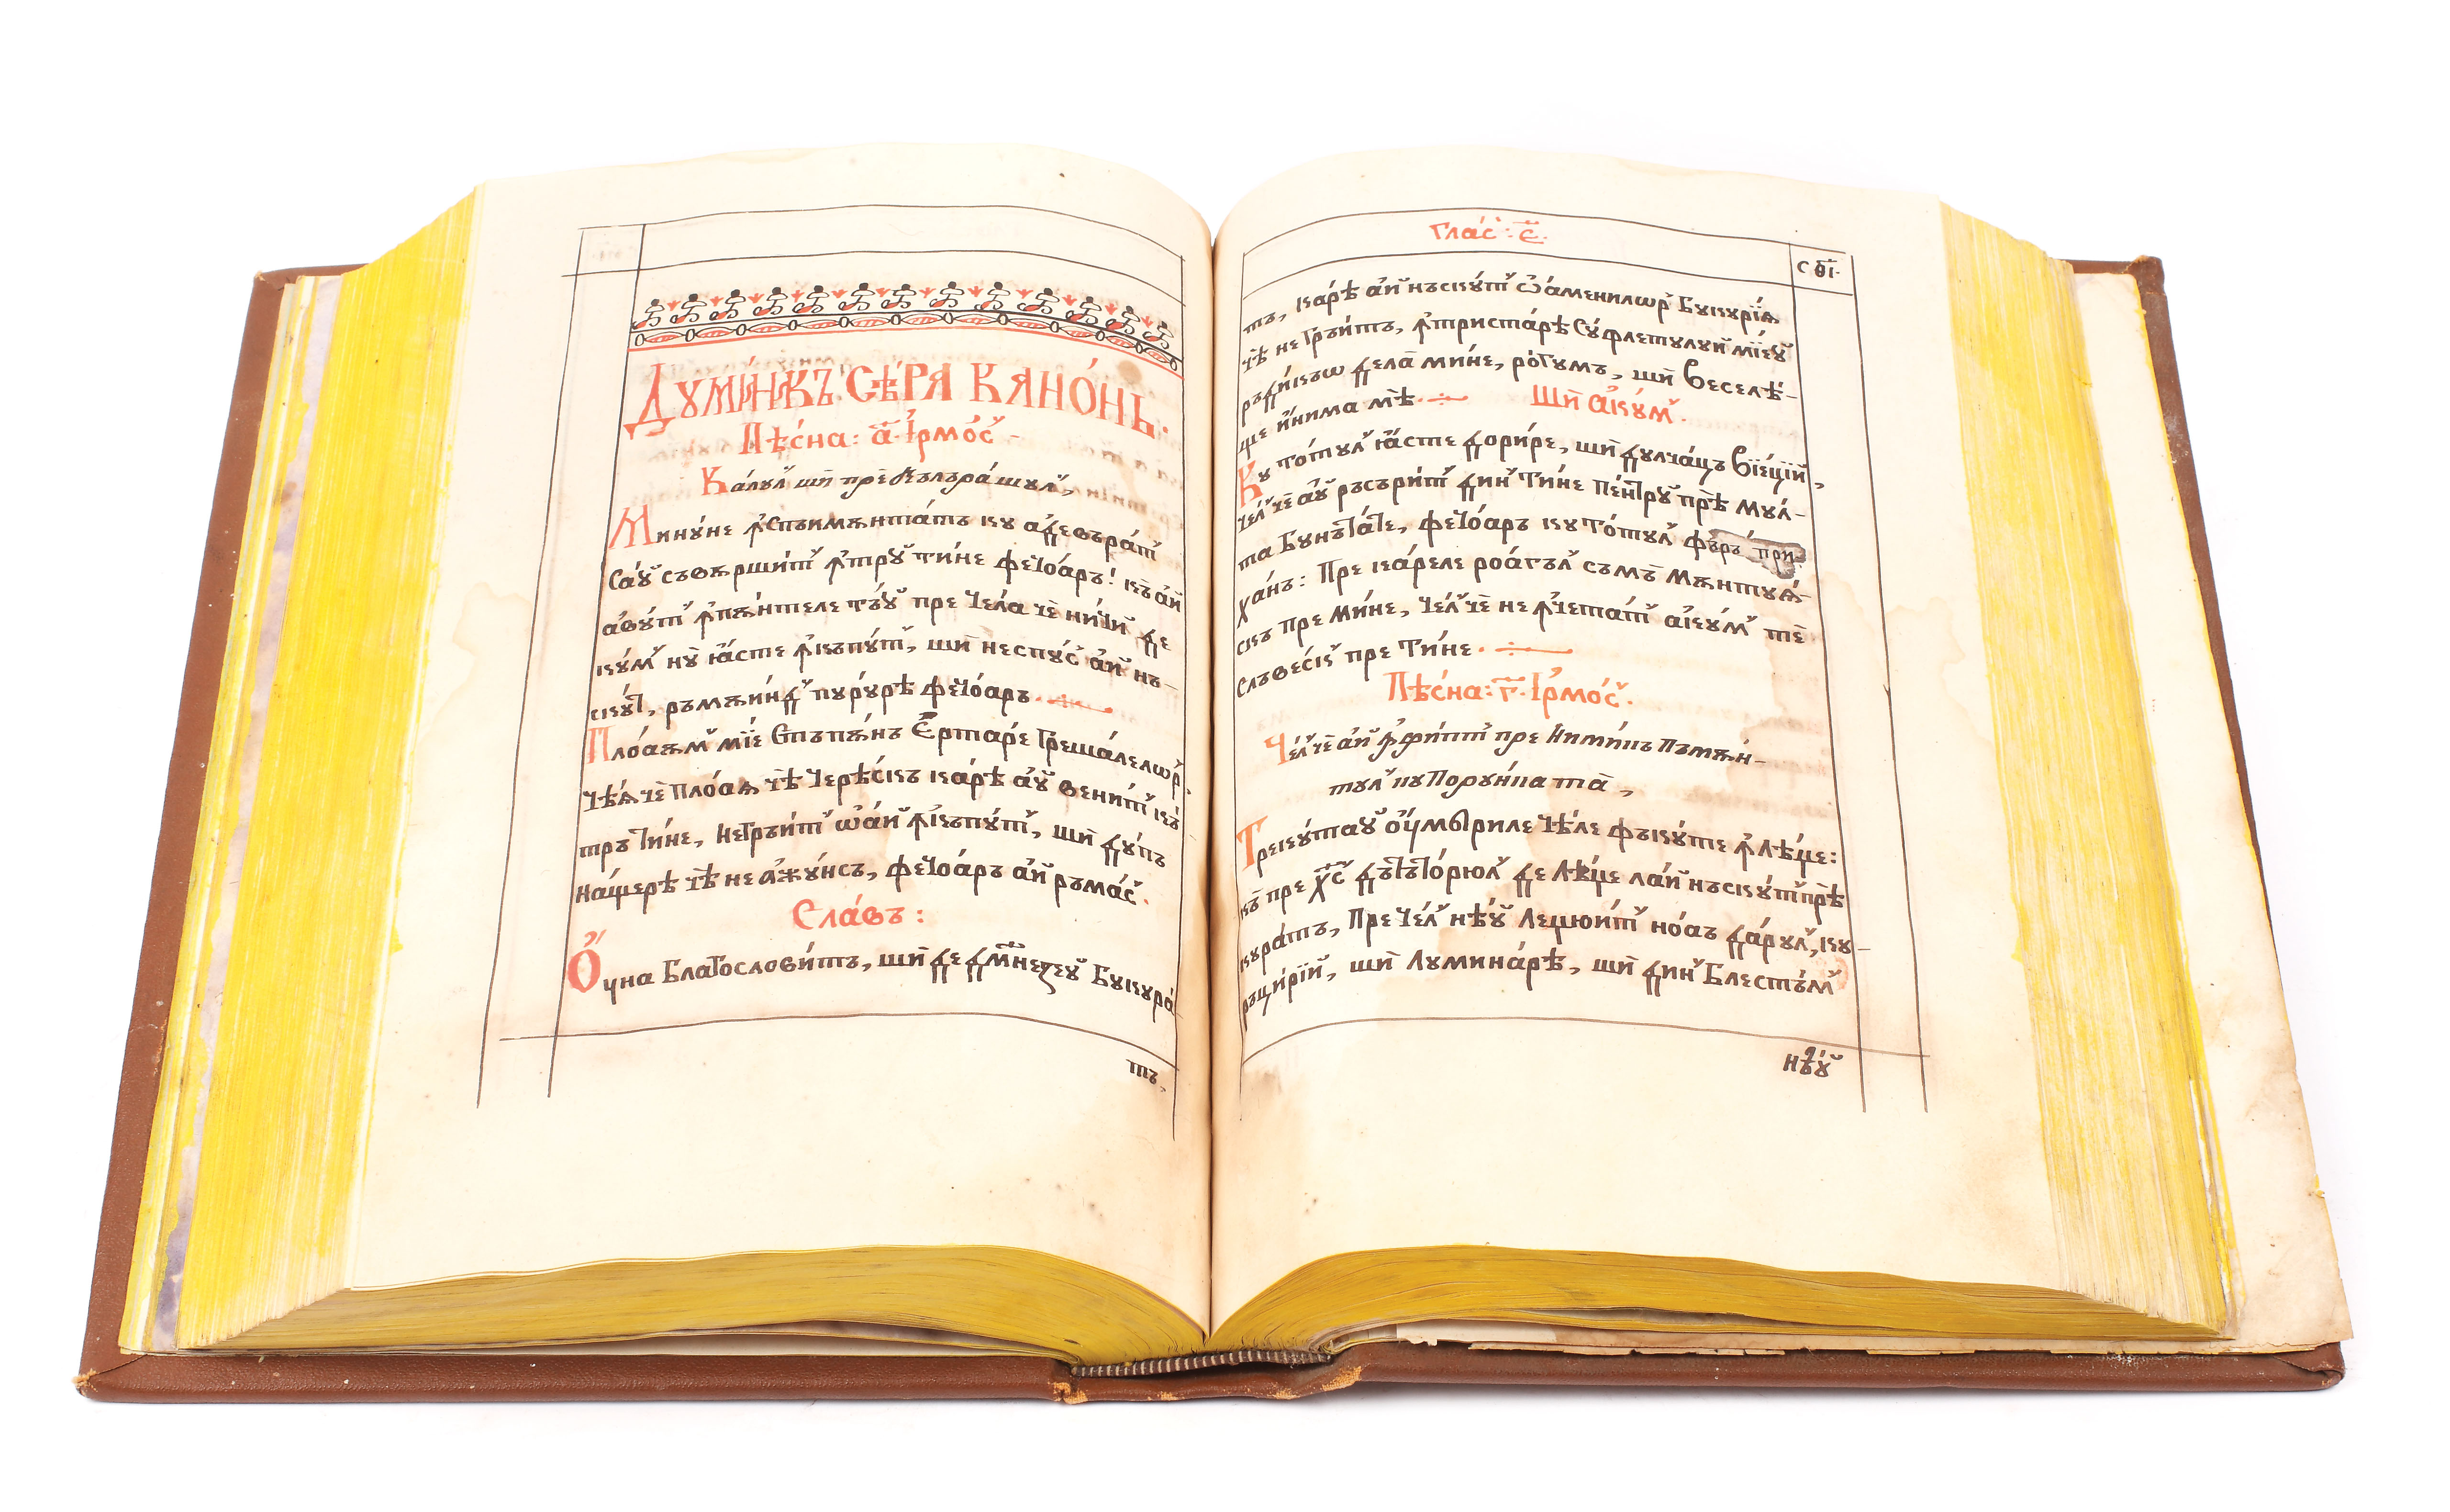 Дꙋми́нкъ. Сѣ́ра Кано́нь.
Пѣ́сна: а҃. Ірмо́с -
Ка́лꙋл ши пре
Минꙋ́не ꙟспъимѫнта́тъ кꙋ адевъра́т
Са́ꙋ съвѫрши́т ꙟтрꙋ ти́не феч҆о́аръ! къ а́й
авꙋ́т ꙟпѫ́нтеле тъ́ꙋ пре че́ла че ни́чй де
кꙋ́м нꙋ ꙗ́сте ꙟкъпꙋ́т, ши неспꙋ́с а́й нъ-
скꙋ́т, ръмѫи́нд пꙋ́рꙋрѣ феч҆о́аръ.
Пло́аѫм мїе Епъпѫ́нъ Ерта́ре Греша́лелѡр,
чѣ́ѧ че Пло́аѧ чѣ Черѣ́скъ ка́рѣ а́ꙋ вени́т къ
тръ Ти́не, Негръи́т ѡ́ай ꙟкъпꙋ́т, ши дꙋ́пъ
На́щерѣ чѣ не ажꙋ́нсъ, феч҆о́аръ а́й ръма́с.
Сла́въ:
О҆ уна Благослови́тъ, ши де дм҃незеꙋ Бꙋкꙋра́
тъ,
Гла́с: є҃.
с ѳ҃і.
тъ, ка́рѣ а́й нъскꙋ́т ѡ́аменилѡр Бꙋкꙋрі́ѧ
чѣ не Гръи́тъ, ꙟтриста́рѣ Сꙋ́флетꙋлꙋй міе́ꙋ
ръди́къѡ дела ми́не, ро́гꙋмъ, ши веселѣ́-
ще и́нима мѣ.
Ши акꙋ́м.
Кꙋ то́тꙋл ꙗ́сте дори́ре, ши дꙋлча́цъ вїе́ций,
че́л че а́ꙋ ръсъри́т дин Ти́не Пе́нтрꙋ прѣ мꙋл-
та Бꙋнъта́те, феч҆о́аръ кꙋ то́тꙋл фъръ при-
ха́нъ: Пре ка́реле роа́гъл съмъ мѫнтꙋѧ́-
скъ пре Ми́не, че́л че не ꙟчета́т акꙋ́м те
Слъве́ск пре Ти́не.
Пѣ́сна: г҃. Ірмо́с.
Че́л че а́й ꙟфи́пт пре Ними́къ Пъмѫ́н-
тꙋл кꙋ Порꙋ́нка та,
Трекꙋ́таꙋ оу҆мбриле чѣ́ле фъкꙋ́те ꙟ Лѣ́ще:
къ пре х҃с дътъто́рюл де Лѣ́ще ла́й нъскꙋ́т прѣ
кꙋра́тъ, Пре че́л нѣ́ꙋ Лецюи́т но́аъ да́рꙋл, кꙋ-
ръци́рїй, ши Лꙋмина́рѣ, ши дин Блестъ́м
нъ́ꙋ